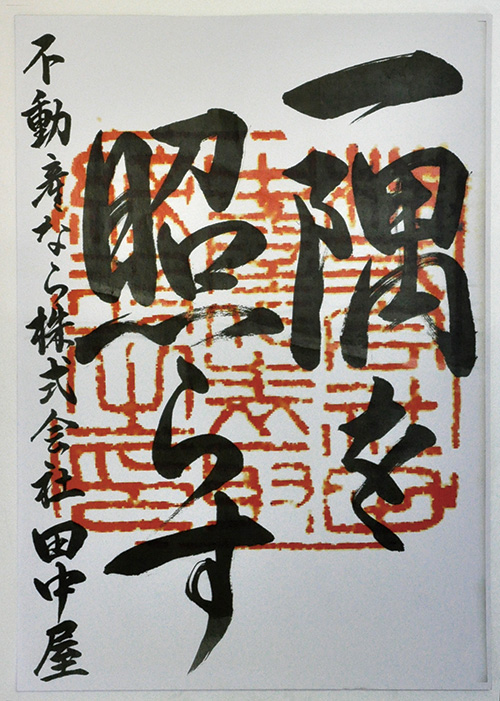 一隅を
照らす
不動産なら株式会社田中屋